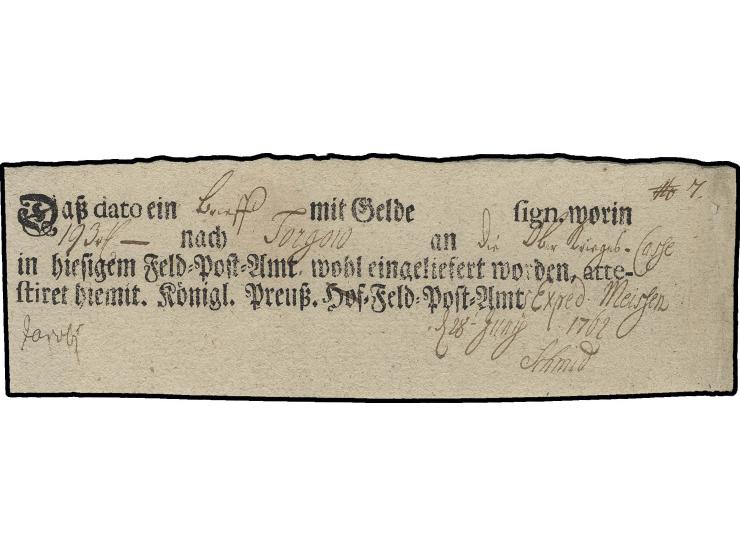 No 7.
Daß dato ein Brieff mit Gelde sign. worin
193 rh — nach Torgow an die Ober Krieges-Casse
in hiesigem Feld-Post-Amt wohl eingeliefert worden, atte-
stiret hiemit. Königl. Preuß. Hof-Feld-Post-Amts Exped. Meissen
d 28 Junij 1762
Jacobi
Schmid